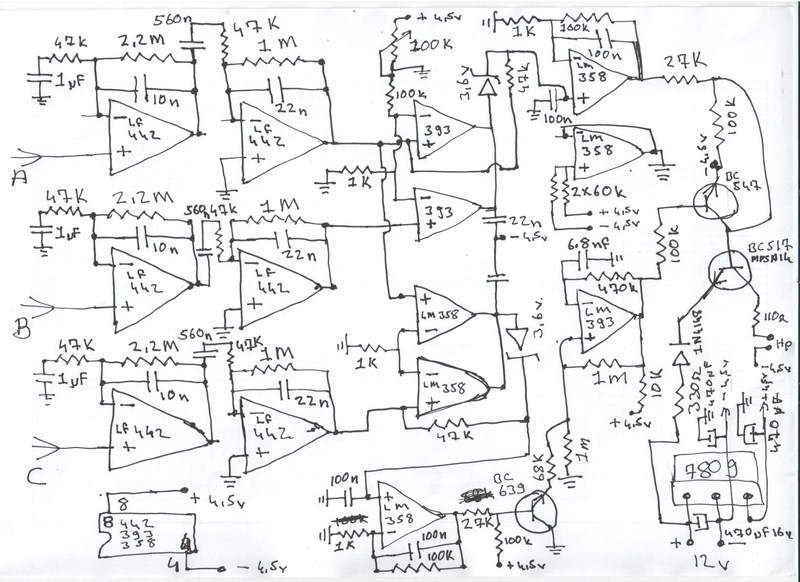 560n
47K
+ 4,5v
1K
100k
47K
2,2M
1M
100K
100n
27K
1µF
10n
22n
100k
3,6v
47K
LM
358
100k
LF
442
LF
442
393
100n
LM
358
-4,5v
BC
547
A
1K
2x60k
+ 4,5v
- 4,5v
47K
2,2M
560n
47k
1M
393
22n
- 4,5v
1µF
10n
22n
LF
442
LF
442
6,8nF
100k
BC517
MPSA14
470k
LM
393
B
560n
47K
2,2M
47K
1M
LM358
3,6v
110Ω
Hp
-4,5v
1N4148
1K
1µF
10n
22n
LM358
1m
10K
+4,5v
330Ω
470µF
-4,5v
+4,5v
470µF
LF 442
LF
442
47K
C
7809
68K
1m
8
+ 4,5v
8
442
393
358
4
4
- 4,5v
100n
100k
1K
LM
358
27K
BC
639
100n
100k
100k
+4,5v
470µF 16v
+
-
12v